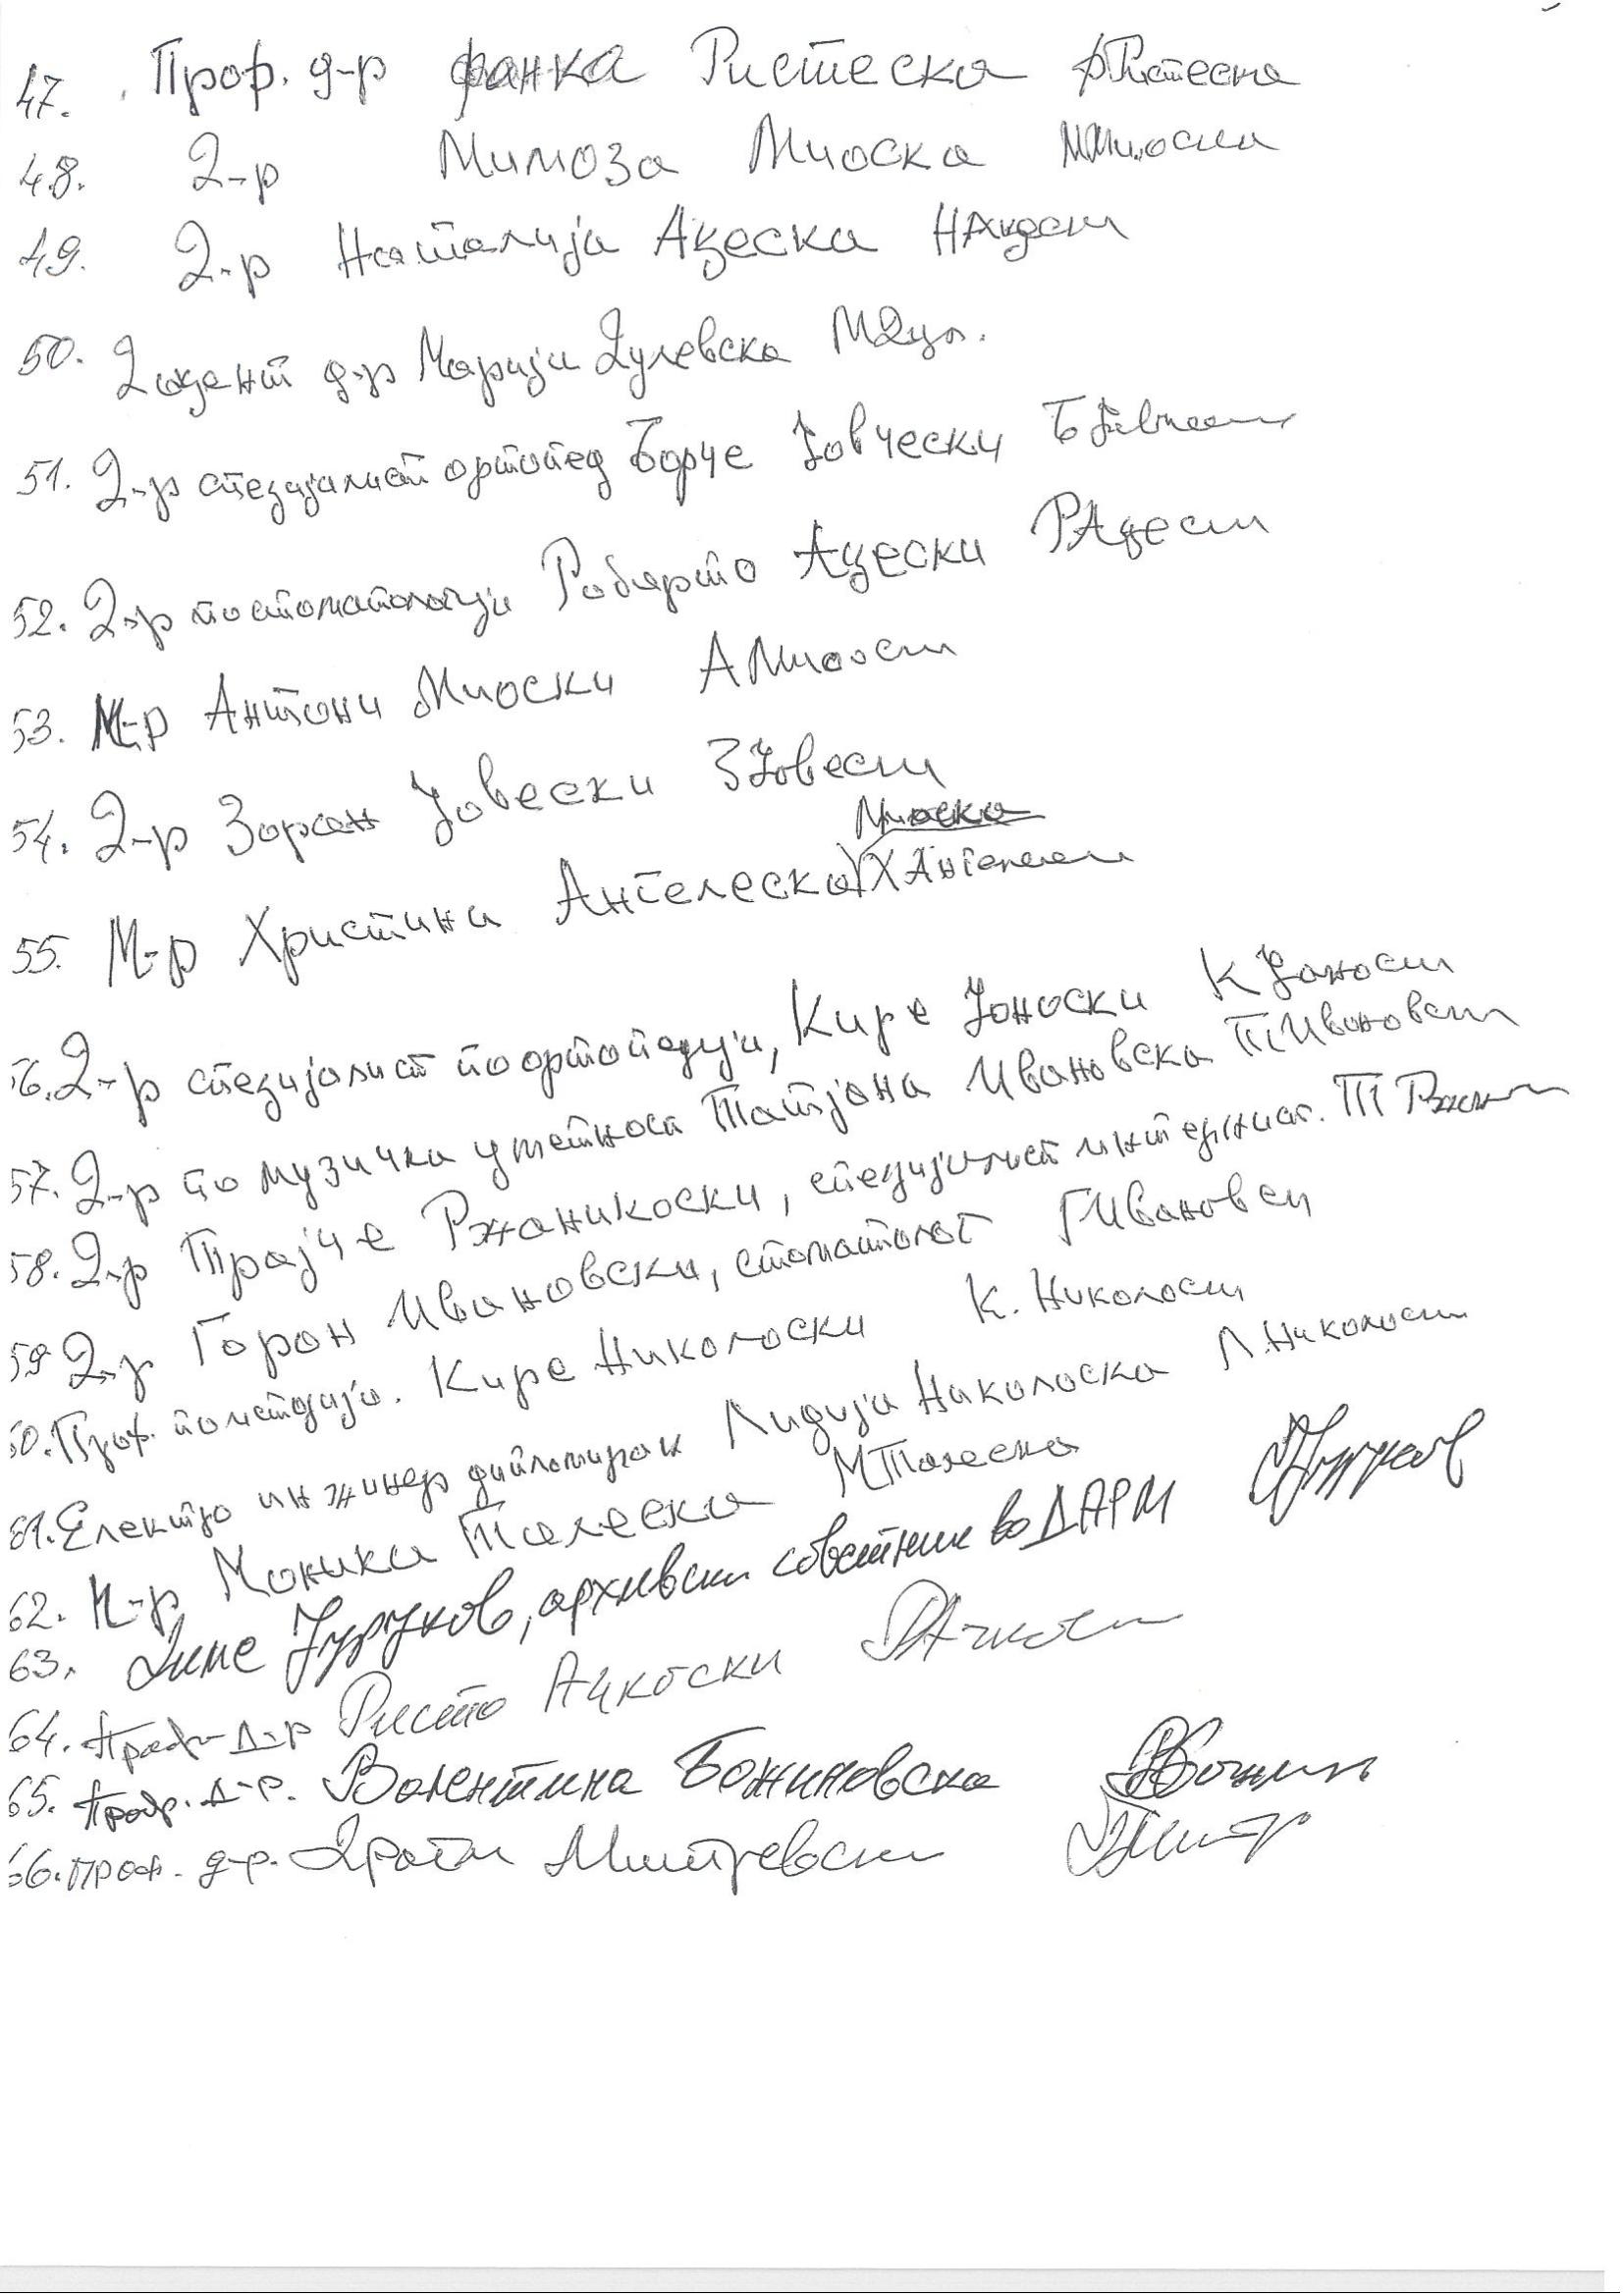 47. Проф. д-р Фанка Ристеска ФРистеска
48. Д-р Мимоза Миоска ММиоска
49. Д-р Наталија Ацеска НАцески
50. Доцент д-р Марија Дулевска МДул.
51. Д-р специјалист ортопед Борче Јовчески
52. Д-р по стоматологија Роберто Ацески РАцески
53. М-р Антони Миоски АМиоски
54. Д-р Зоран Јовески ЗЈовески
Миоска
55. М-р Христина Ангелеска ХАнгелеска
56. Д-р специјалист по ортопедија, Кире Јоноски К Јаноски
57. Д-р по музичка уметност Татјана Ивановска
58. Д-р Трајче Ржаникоски, специјалист интернист.
59 Д-р Горан Ивановски, стоматолог ГИвановски
60. Проф. Кире Николоски К. Николоски
61. Електро инжинер дипломиран Лидија Николоска Л. Николоски
62. М-р Моника Талеска МТалеска
63. Диме Јуруков, архивски советник во ДАРМ
64. Проф. Д-р Ристо Ачкоски РАчкоски
65. Проф. Д-р. Валентина Божиновска
66. Проф. д-р. Драги Митревски